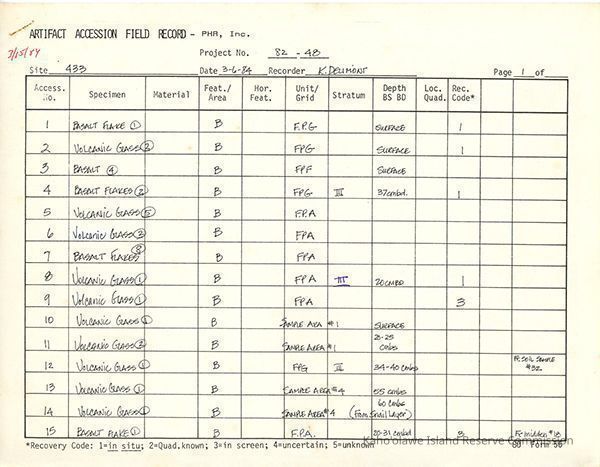 ARTIFACT ACCESSION FIELD RECORD - PHR, Inc.
3/15/84
Project No. 82 - 48
Site 433 Date 3-6-84 Recorder K. DELIMONT Page 1 of
Access. No. Specimen Material Feat./Area Hor. Feat. Unit/Grid Stratum Depth BS BD Loc. Quad. Rec. Code*
1 BASALT FLAKE ① B F.P.G SURFACE 1
2 VOLCANIC GLASS ② B FPG SURFACE 1
3 BASALT ④ B FPF SURFACE
4 BASALT FLAKES ② B FPG III 37cmbd. 1
5 VOLCANIC GLASS ⑤ B FPA
6 VOLCANIC GLASS B FPA
7 BASALT FLAKES ⑧ B FPA
8 VOLCANIC GLASS ① B FPA III 20CMBD 1
9 VOLCANIC GLASS ① B FPA 3
10 VOLCANIC GLASS ① B SAMPLE AREA #1 SURFACE
11 VOLCANIC GLASS B SAMPLE AREA #1 cmbs
12 VOLCANIC GLASS ① B FPG II 34-40 cmbs Fr. SOIL SAMPLE #32
13 VOLCANIC GLASS ① B SAMPLE AREA #4 55 cmbs
14 VOLCANIC GLASS ① B SAMPLE AREA #4 60 cmbs (From Snail Layer)
15 BASALT FLAKE ① B F.P.A. 20-31 cmbd 3 Fr. midden #18
*Recovery Code: 1=in situ; 2=Quad.known; 3=in screen; 4=uncertain; 5=unknown
Kaho'olawe Island Reserve Commission